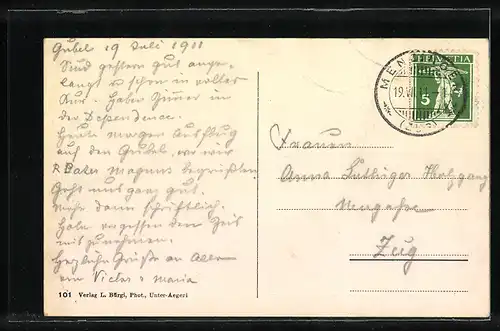 Gubel 19 Juli 1911
Sind gestern gut ange-
langt u schon in voller
Kur. Haben Zimmer in
der Dependence.
Heute morgen Ausflug
auf den Gubel, wo wir
P. Magnus begrüßten
Geht uns ganz gut.
Mehr dann schriftlich.
Habe vergessen den
mitzunehmen.
Herzliche Grüße an Alle
Victor & Maria
101 Verlag L. Bürgi, Phot., Unter-Aegeri
HELVETIA
5
MENZINGEN
19.VII.11
Frauen
Anna Luthiger Hotzgang
Neugasse
Zug